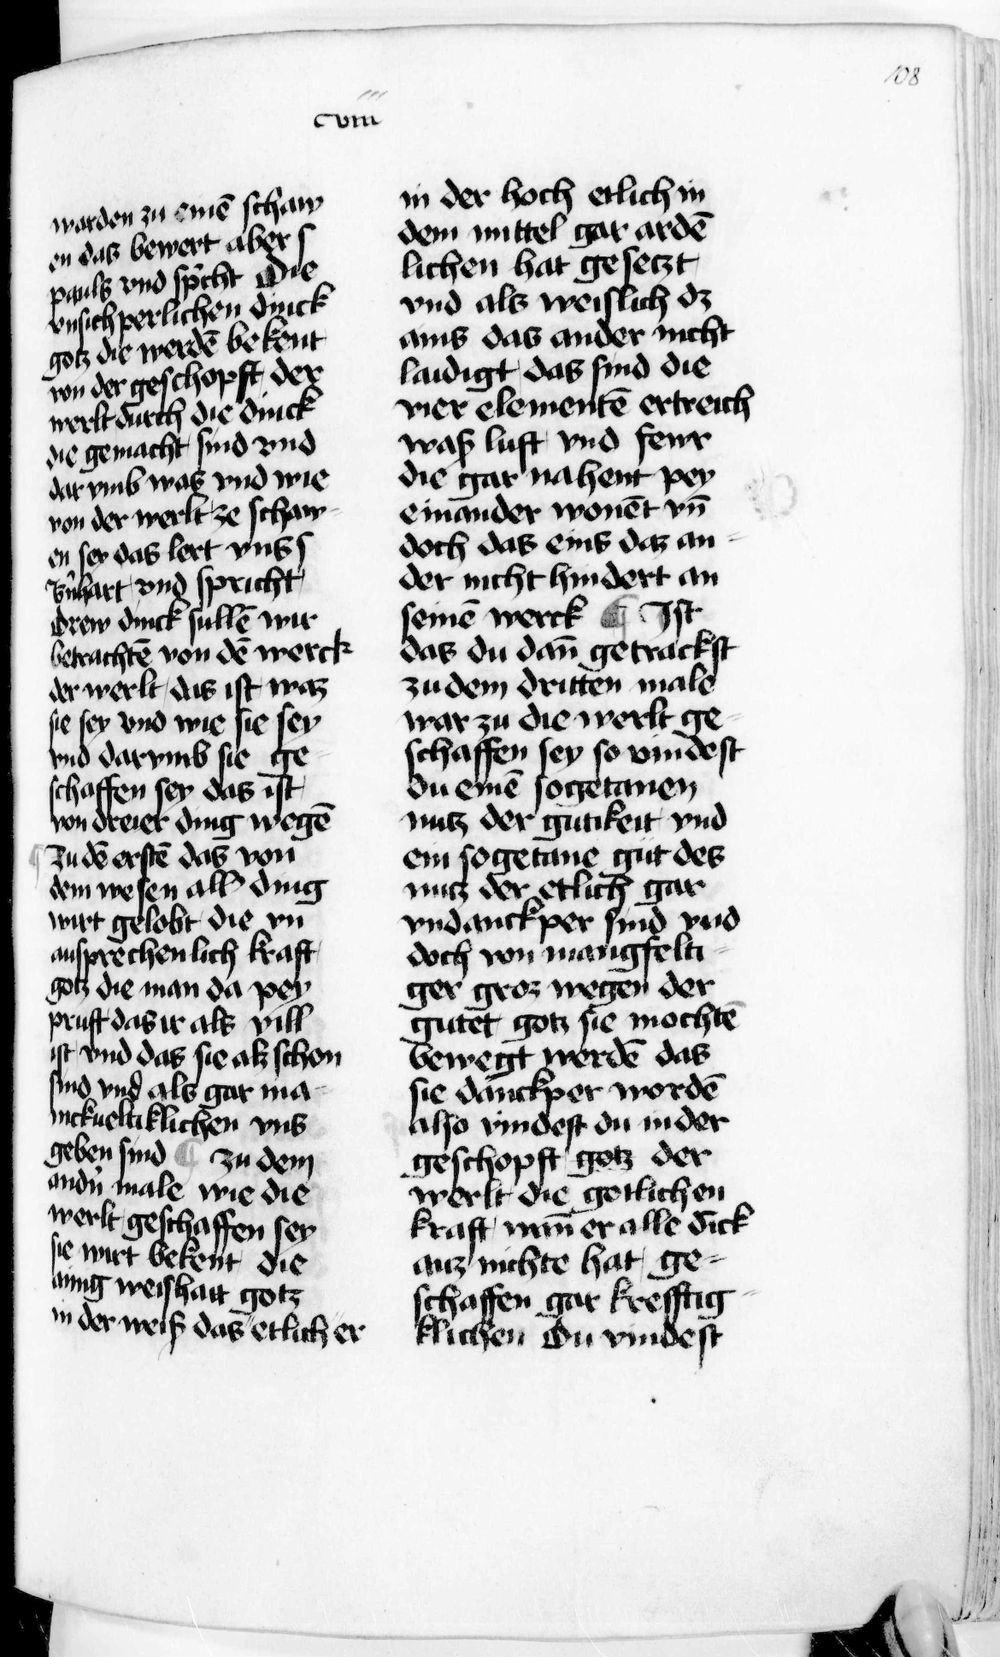 108
cviii
warden zu einē schaw
en das bewert aber s
pauls vnd sp̄cht Die
vnsichperlichen dinck
gotz die werdē bekent
von der geschopft der
werlt durch die dinck
die gemacht sind vnd
dar vmb was vnd wie
von der werlt ze schaw-
en sey das lert vns s
vnd spricht
Drew dinck sullē wir
betrachtē von dē werck
der werlt das ist waz
sie sey vnd wie sie sey
vnd darvmb sie ge-
schaffen sey das ist
von dreier ding wegē
Zu dē erstē das von
dem wesen all̄ ding
wirt gelobt die vn
aussprechenlich kraft
gotz die man da pey
pruft das ir als vill
ist vnd das sie als schon
sind vnd als gar ma-
nickueltiklichen vns
geben sind ¶ zu dem
andn̄ male wie die
werlt geschaffen sey
sie wirt bekent die
ainig weishait gotz
in der weiß das etlich er
in der hoch etlich in
dem mittel gar ardē
lichen hat gesetzt
vnd als weislich dz
ains das ander nicht
laidigt das sind die
vier elementē ertreich
waß luft vnd fewr
die gar nahent pey
einander wonēt vn̄
doch das eins daz an-
der nicht hindert an
seinē werck ¶ Ist
das du dan̄ getrackst
zu dem dritten male
war zu die werlt ge-
schaffen sey so vindest
du einē sogetanen
nutz der gutikeit vnd
ein sogetane gut des
nutz der etlich gar
vndanckper sind vnd
doch von mangfelti-
ger groz wegen der
gutet gotz sie mochtē
bewegt werdē das
sie danckper wordē
also vindest du in der
geschopft gotz der
werlt die gotlichen
kraft wan̄ er alle dīck
auz nichte hat ge-
schaffen gar krefftig-
klichen Du vindest